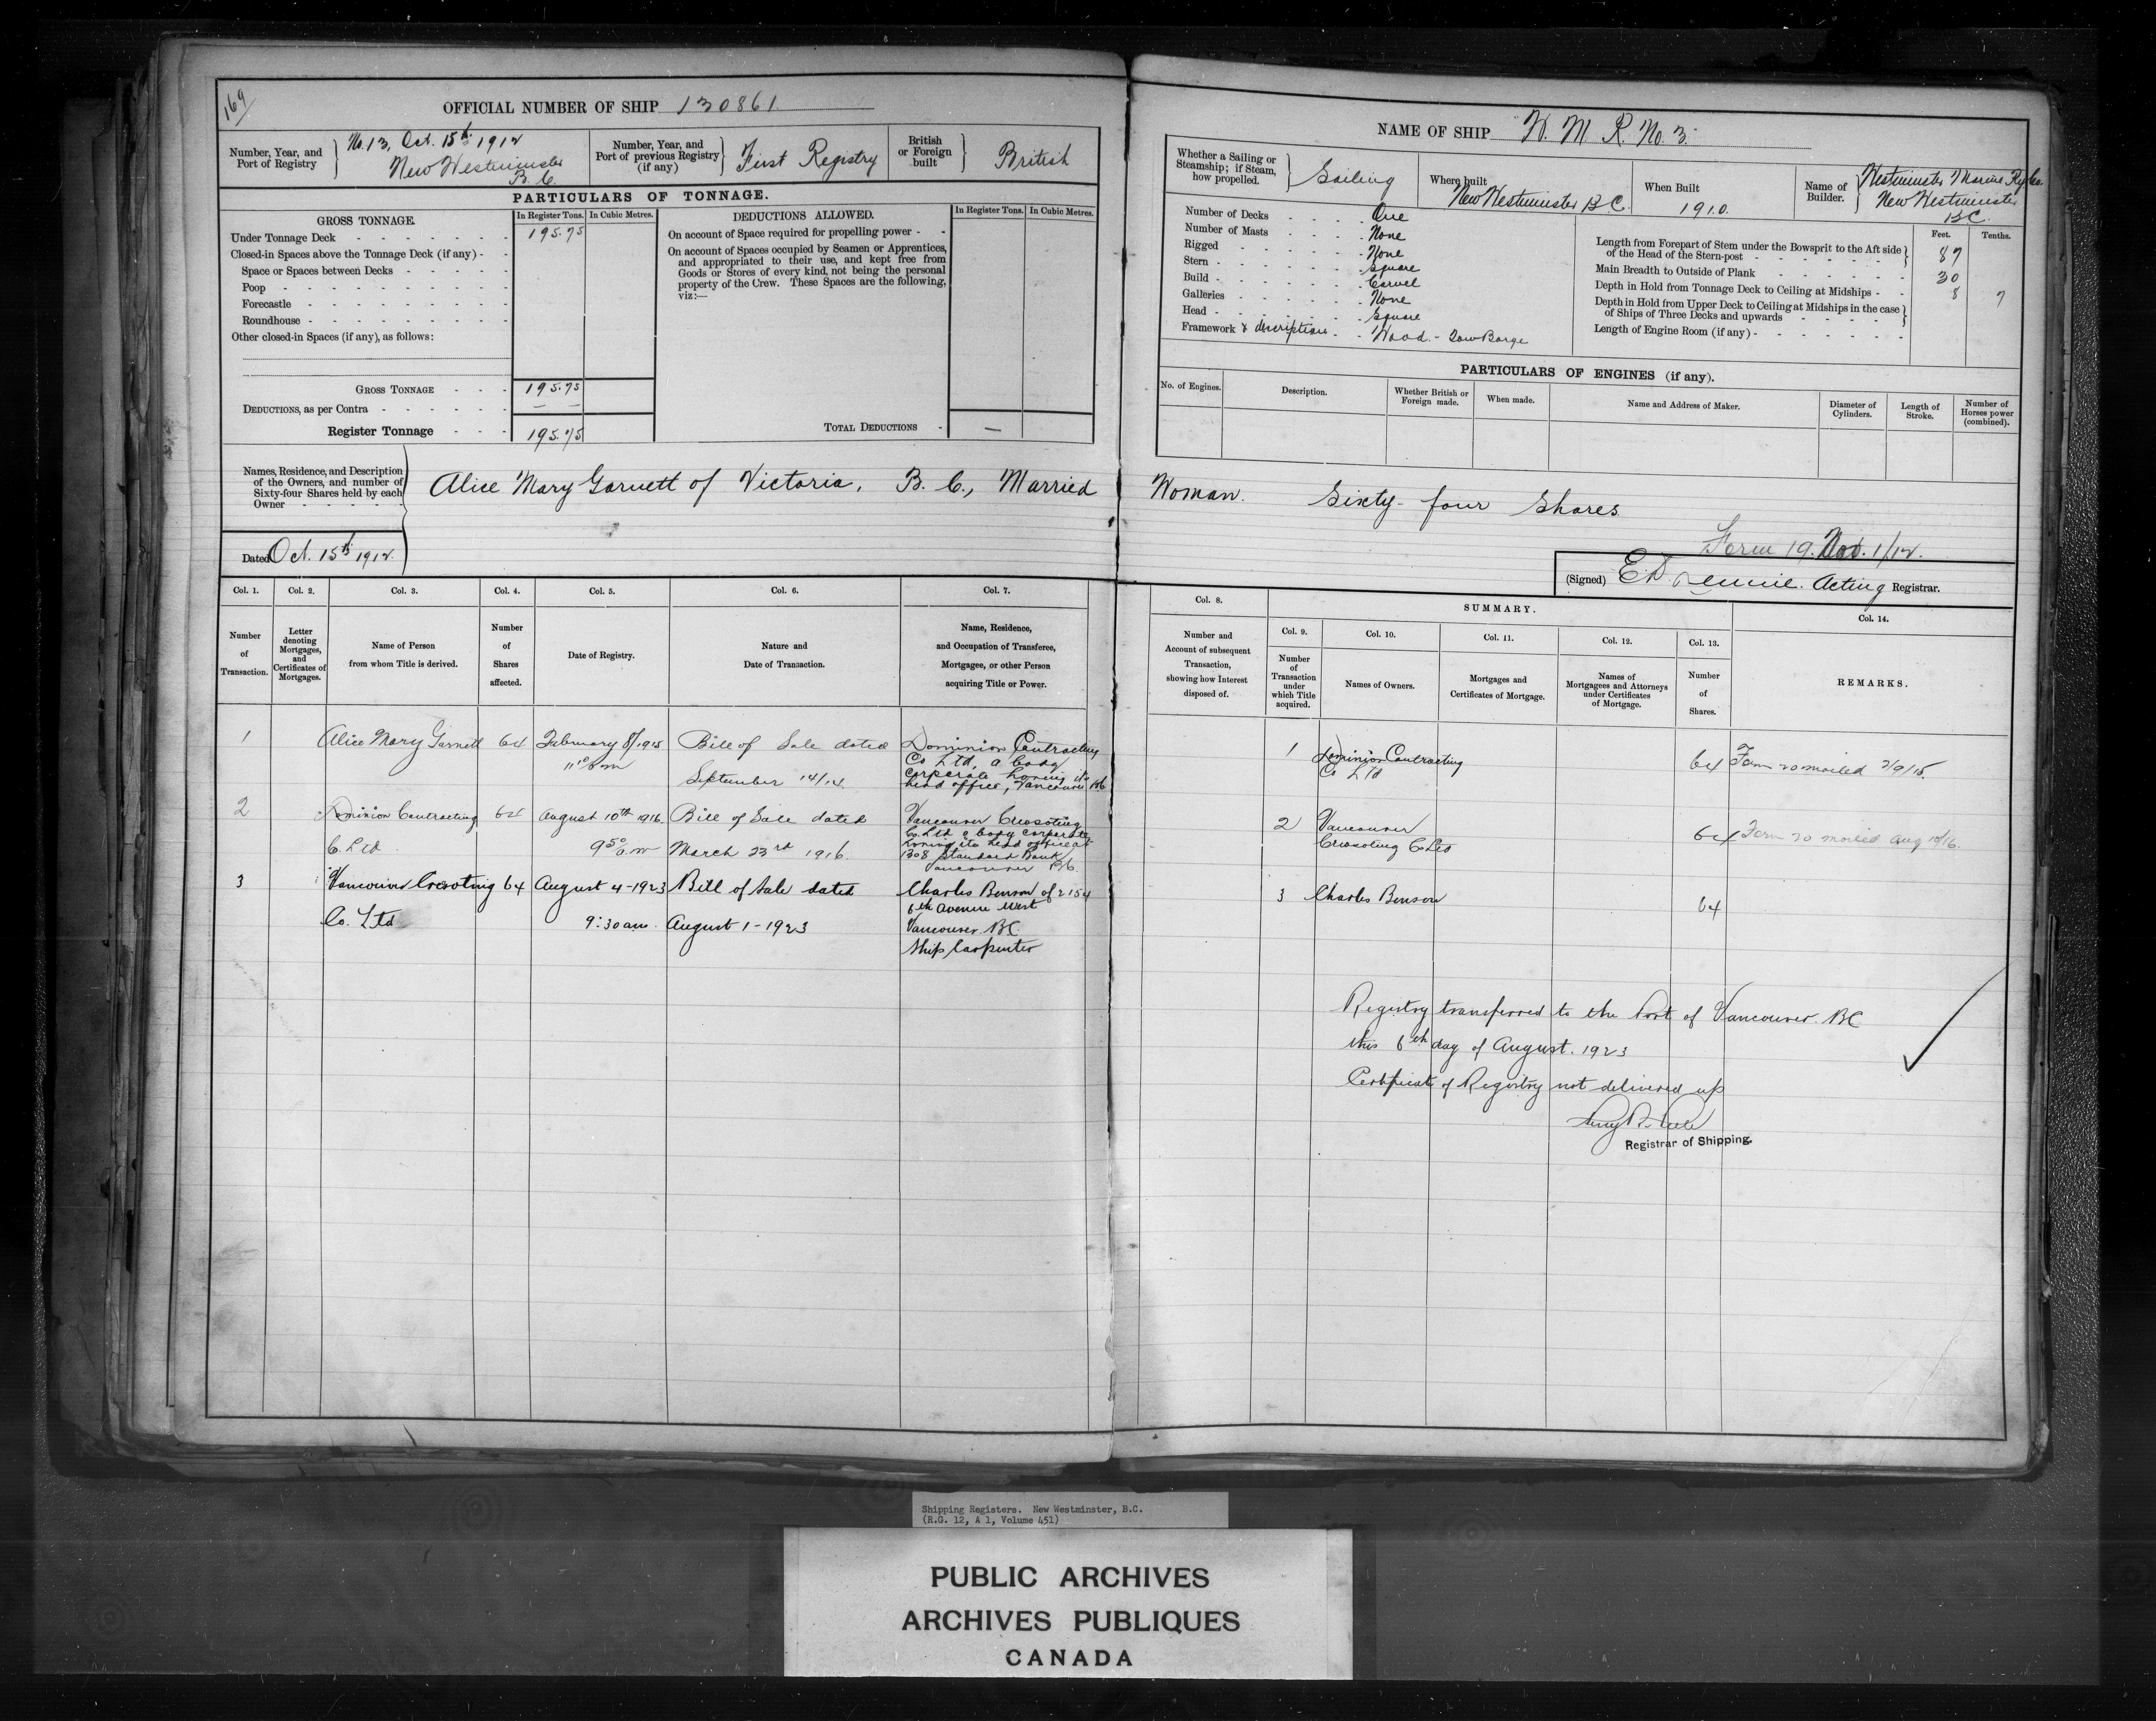 169
OFFICIAL NUMBER OF SHIP 130861
Number, Year, and
Port of Registry
No. 13, Oct. 15th 1912
New Westminster
B. C.
Number, Year, and
Port of previous Registry
(if any)
First Registry
British
or Foreign
built
British
PARTICULARS OF TONNAGE.
GROSS TONNAGE.
In Register Tons.
In Cubic Metres.
Under Tonnage Deck
195.75
Closed-in Spaces above the Tonnage Deck (if any)
Space or Spaces between Decks
Poop
Forecastle
Roundhouse
Other closed-in Spaces (if any), as follows:
GROSS TONNAGE
195.75
DEDUCTIONS, as per Contra
— —
Register Tonnage
195.75
DEDUCTIONS ALLOWED.
In Register Tons.
In Cubic Metres.
On account of Space required for propelling power
On account of Spaces occupied by Seamen or Apprentices,
and appropriated to their use, and kept free from
Goods or Stores of every kind, not being the personal
property of the Crew. These Spaces are the following,
viz:—
TOTAL DEDUCTIONS
—
NAME OF SHIP W. M. R. No. 3.
Whether a Sailing or
Steamship; if Steam,
how propelled.
Sailing
Where built
New Westminster B.C.
When Built
1910.
Name of
Builder.
Westminster Marine Ry Co.
New Westminster
B.C.
Number of Decks One
Number of Masts None
Rigged None
Stern Square
Build Carvel
Galleries None
Head Square
Framework & description Wood. - Scow Barge
Feet.
Tenths.
Length from Forepart of Stem under the Bowsprit to the Aft side
of the Head of the Stern-post 87
Main Breadth to Outside of Plank 30
Depth in Hold from Tonnage Deck to Ceiling at Midships 8 7
Depth in Hold from Upper Deck to Ceiling at Midships in the case
of Ships of Three Decks and upwards
Length of Engine Room (if any)
PARTICULARS OF ENGINES (if any).
No. of Engines.
Description.
Whether British or
Foreign made.
When made.
Name and Address of Maker.
Diameter of
Cylinders.
Length of
Stroke.
Number of
Horses power
(combined).
Names, Residence, and Description
of the Owners, and number of
Sixty-four Shares held by each
Owner
Alice Mary Garnett of Victoria, B. C., Married Woman. Sixty-four Shares
Dated Oct. 15th 1912.
Form 19. Nov. 1/12.
(Signed) Acting Registrar.
Col. 1.
Col. 2.
Col. 3.
Col. 4.
Col. 5.
Col. 6.
Col. 7.
Number
of
Transaction.
Letter
denoting
Mortgages,
and
Certificates of
Mortgages.
Name of Person
from whom Title is derived.
Number
of
Shares
affected.
Date of Registry.
Nature and
Date of Transaction.
Name, Residence,
and Occupation of Transferee,
Mortgagee, or other Person
acquiring Title or Power.
Col. 8.
Number and
Account of subsequent
Transaction,
showing how Interest
disposed of.
SUMMARY.
Col. 9.
Col. 10.
Col. 11.
Col. 12.
Col. 13.
Number
of
Transaction
under
which Title
acquired.
Names of Owners.
Mortgages and
Certificates of Mortgage.
Names of
Mortgagees and Attorneys
under Certificates
of Mortgage.
Number
of
Shares.
Col. 14.
REMARKS.
1 Alice Mary Garnett 64 February 8/1915 Bill of Sale dated Dominion Contracting
11 10 am September 14/14. Co Ltd, a body
corporate having its
head office, Vancouver B.C
2 Dominion Contracting 64 August 10th 1916. Bill of Sale dated Vancouver Creosoting
Co. Ltd 9 50 a.m March 23rd 1916. Co. Ltd a body corporate
having its head office at
1308 Standard Bank
Vancouver B.C.
3 Vancouver Creosoting 64 August 4-1923 Bill of Sale dated Charles Benson of 2154
6th Avenue West
Co. Ltd 9:30 am. August 1-1923 Vancouver. BC
Ship Carpenter
1 Dominion Contracting
Co Ltd
64 Form 20 mailed 2/9/15.
2 Vancouver
Creosoting Co Ltd
64 Form 20 mailed Aug 10/16.
3 Charles Benson
64
Registry transferred to the Port of Vancouver. BC
this 6th day of August. 1923
Certificate of Registry not delivered up
Registrar of Shipping.
Shipping Registers. New Westminster, B.C.
(R.G. 12, A 1, Volume 451)
PUBLIC ARCHIVES
ARCHIVES PUBLIQUES
CANADA